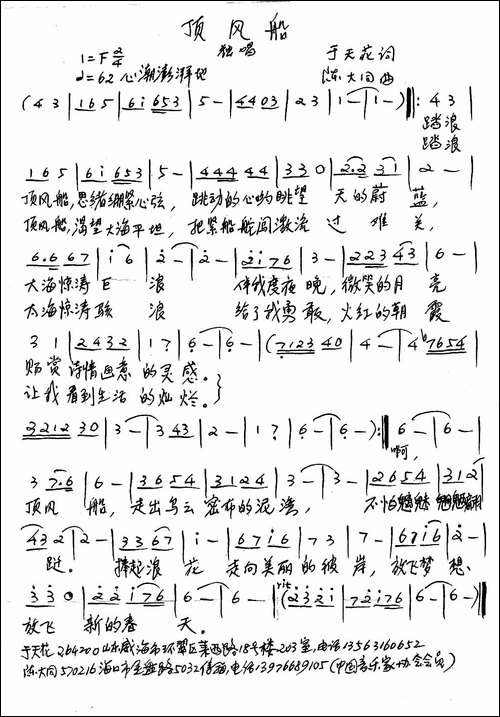 顶风船
独唱
1=F 2/4 于天花词
♩=62 心潮澎湃地 陈大同曲
(4 3 | 1 6 5 | 6 i 6 5 3 | 5 - | 4 4 0 3 | 2 3 | 1 - | 1 - ) ‖: 4 3 |
踏浪
踏浪
1 6 5 | 6 i 6 5 3 | 5 - | 4 4 4 4 4 | 3 3 0 | 2·2 3 1 | 2 - |
顶风船,思绪绷紧心弦, 跳动的心哟眺望 天的蔚 蓝,
顶风船,渴望大海平坦, 把紧船舵闯激流 过 难 关,
6·6 6 7 | i 6 | 2 - | 2 - | 2 i 7 6 | 3 - | 2 2 3 4 3 | 6 - |
大海惊涛 巨 浪 伴我度夜 晚, 微笑的月 亮
大海惊涛 骇 浪 给了我勇 敢, 火红的朝 霞
3 1 | 2 4 3 2 | 1 7 | 6 - | 6 - | (7 1 2 3 4 0 | 4 - | 4 7 6 5 4 |
赐赏 诗情画意 的 灵 感。
让我 看到生活 的 灿 烂。
3 2 1 2 3 0 | 3 - | 3 4 3 | 2 - | 1 7 | 6 - | 6 - ) :‖ 6 - | 6 - |
啊,
3 7·6 | 6 - | 3 6 5 4 | 3 1 2 4 | 3 - | 3 - | 2 6 5 4 | 3 1 2 |
顶风 船, 走出乌云 密布的泥湾, 不怕魑魅
4 3 2 | 2 - | 3 3 6 7 | i - | 6 7 i 6 | 7 3 | 7 - | 6 7 i 6 | 2 - |
捧起浪 花 走向美丽 的彼 岸, 放飞梦 想
3 3 0 | 2 2 i 7 6 | 6 - | 6 - | rit (2 3 2 i | 7 2 i 7 6 | 6 - | 6 - ) ‖
放飞 新的春 天。
于天花 264200 山东威海市环翠区莱西路18号楼203室,电话13563160652
陈大同 570216 海口市金盘路5032信箱,电话13976689105 (中国音乐家协会会员)